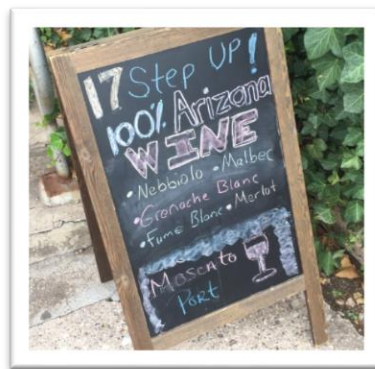 17 Step UP!
100% Arizona
WINE
• Nebbiolo • Malbec
• Grenache Blanc
• Fume Blanc • Merlot
Moscato
Port